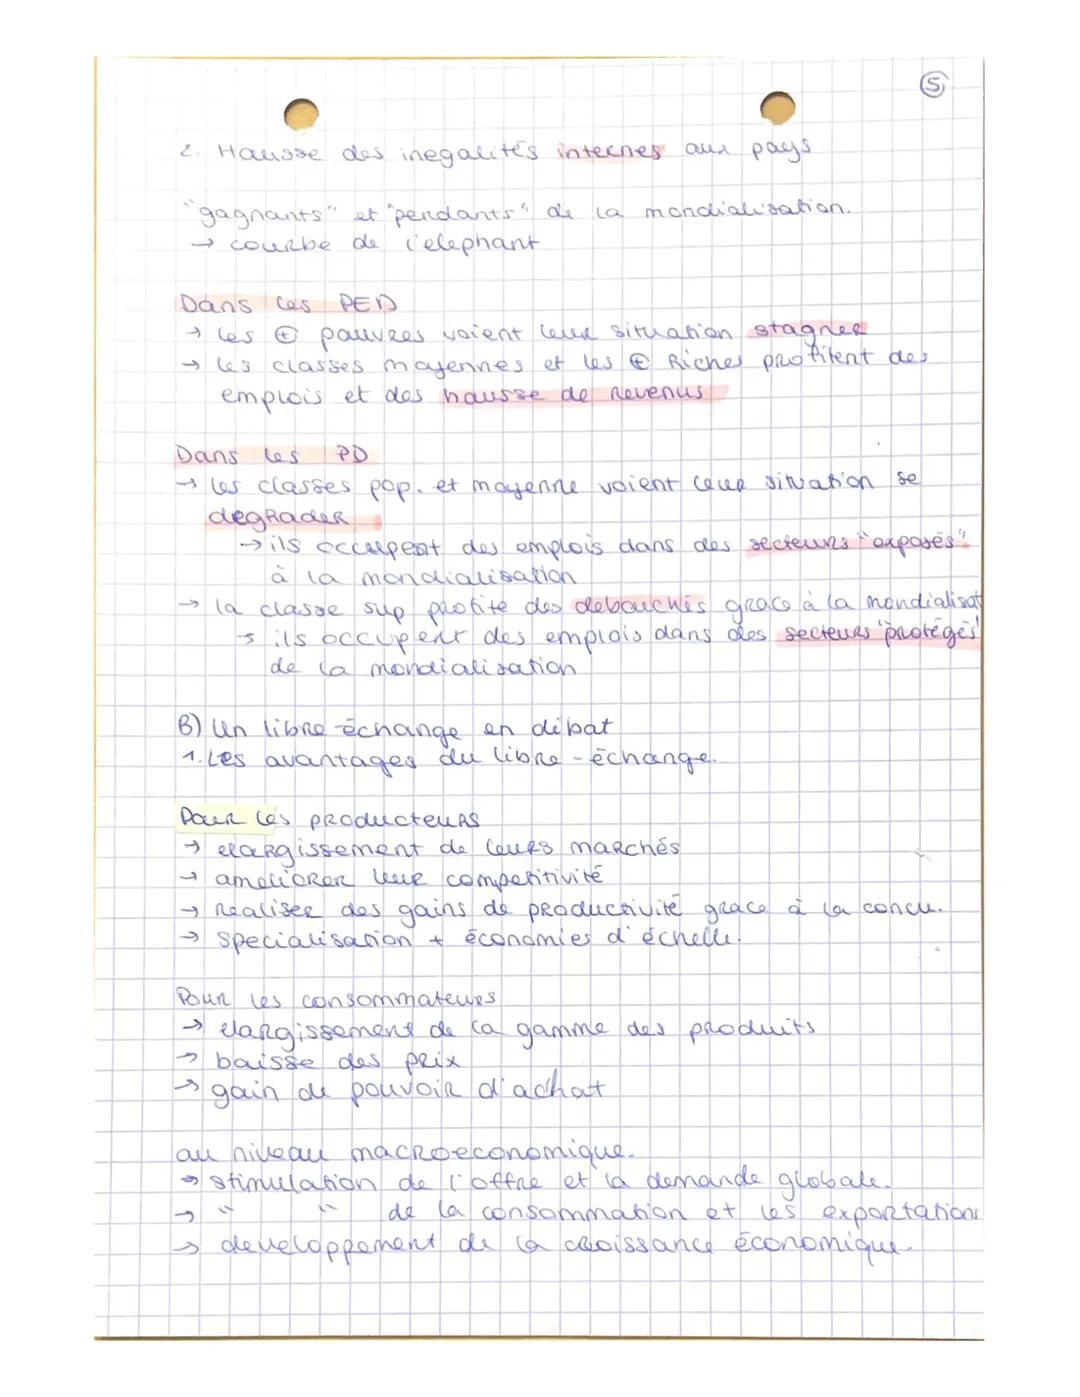 5
2. Hausse des inegalités internes aux pays
"gagnants" et "perdants" de la mondialisation.
→ courbe de l'elephant
Dans les PED
→ les ⊕ pauvres voient leur situation stagner
→ les classes moyennes et les ⊕ Riches profitent des
emplois et des hausse de revenus
Dans les PD
→ les classes pop. et moyenne voient leur situation se
degrader
→ ils occupent des emplois dans des secteurs "exposés"
à la mondialisation
→ la classe sup profite des debouchés grace à la mondialisat
→ ils occupent des emplois dans des secteurs "protégés"
de la mondialisation
B) Un libre-échange en débat
1. Les avantages du libre-échange.
Pour les producteurs
→ elargissement de leurs marchés
→ ameliorer leur competitivité
→ realiser des gains de productivité grace à la concu.
→ specialisation + économies d'échelle.
Pour les consommateurs
→ elargissement de la gamme des produits
→ baisse des prix
→ gain de pouvoir d'achat
au niveau macroeconomique.
→ stimulation de l'offre et la demande globale.
→ " " de la consommation et les exportations
→ developpement de la croissance économique.